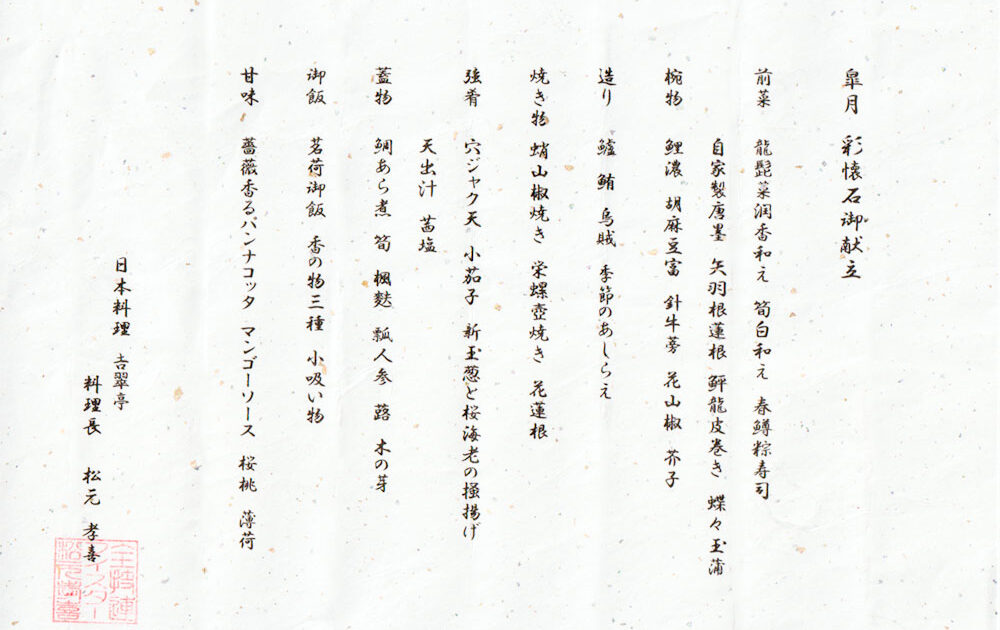 皐月　彩懐石御献立
前菜　龍髭菜润香和え　筍白和え　春鱒粽寿司
自家製唐墨　矢羽根蓮根　鮃龍皮巻き　蝶々玉蒲
椀物　鯉濃　胡麻豆富　針牛蒡　花山椒　芥子
造り　鱸　鮪　烏賊　季節のあしらえ
焼き物　蛸山椒焼き　栄螺壺焼き　花蓮根
強肴　穴ジャク天　小茄子　新玉葱と桜海老の掻揚げ
天出汁　茜塩
蓋物　鯛あら煮　筍　楓麩　瓢人参　蕗　木の芽
御飯　茗荷御飯　香の物三種　小吸い物
甘味　薔薇香るパンナコッタ　マンゴーソース　桜桃　薄荷
日本料理　吉翠亭
料理長　松元　孝喜